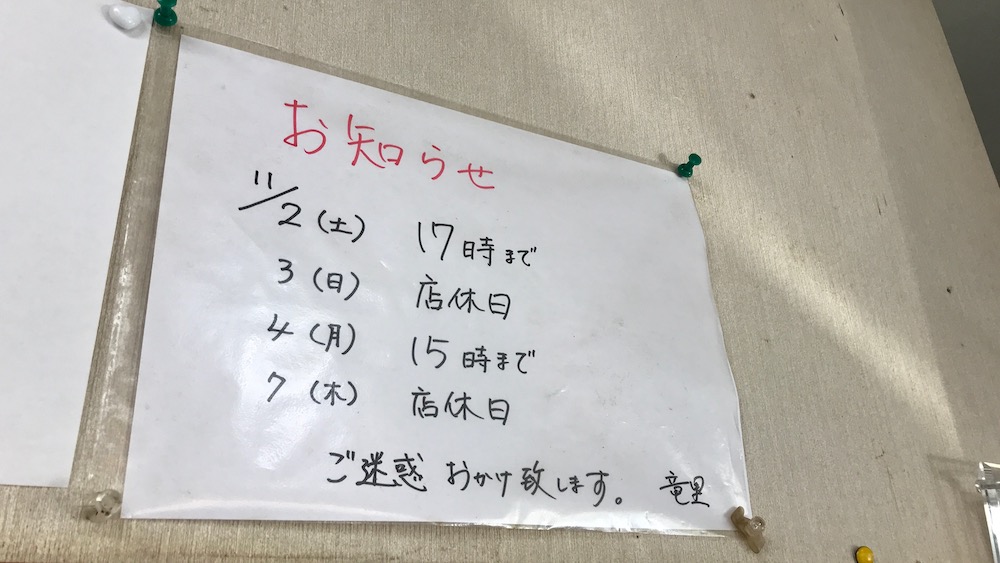 お知らせ
11/2(土) 17時まで
3(日) 店休日
4(月) 15時まで
7(木) 店休日
ご迷惑おかけ致します。 竜里